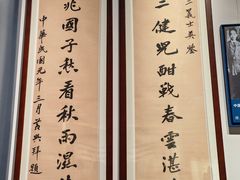 三義士英鑒
三健兒酣戰春雲湛
兆國子愁看秋雨濕
中華民國元年三月黃興拜題